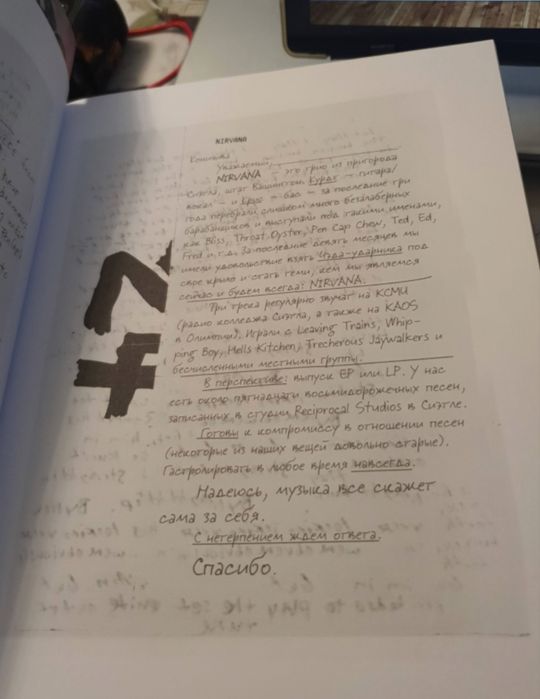 NIRVANA
Уважаемый,
NIRVANA – это трио из пригорода
Сиэтла, штат Вашингтон. Курдт – гитара/
вокал – и Крис – бас – за последние три
года перебрали слишком много безалаберных
барабанщиков и выступали под такими именами,
как Bliss, Throat Oyster, Pen Cap Chew, Ted, Ed,
Fred и т.д. За последние девять месяцев мы
имели удовольствие взять Чэда-ударника под
свое крыло и стать теми, кем мы являемся
сейчас и будем всегда: NIRVANA.
Три трека регулярно звучат на KCMU
(радио колледжа Сиэтла, а также на KAOS
в Олимпии). Играли с Leaving Trains, Whip-
ping Boy, Hells Kitchen, Trecherous Jaywalkers и
бесчисленными местными группы.
В перспективе: выпуск EP или LP. У нас
есть около пятнадцати восьмидорожечных песен,
записанных в студии Reciprocal Studios в Сиэтле.
Готовы к компромиссу в отношении песен
(некоторые из наших вещей довольно старые).
Гастролировать в любое время навсегда.
Надеюсь, музыка все скажет
сама за себя.
С нетерпением ждем ответа.
Спасибо.